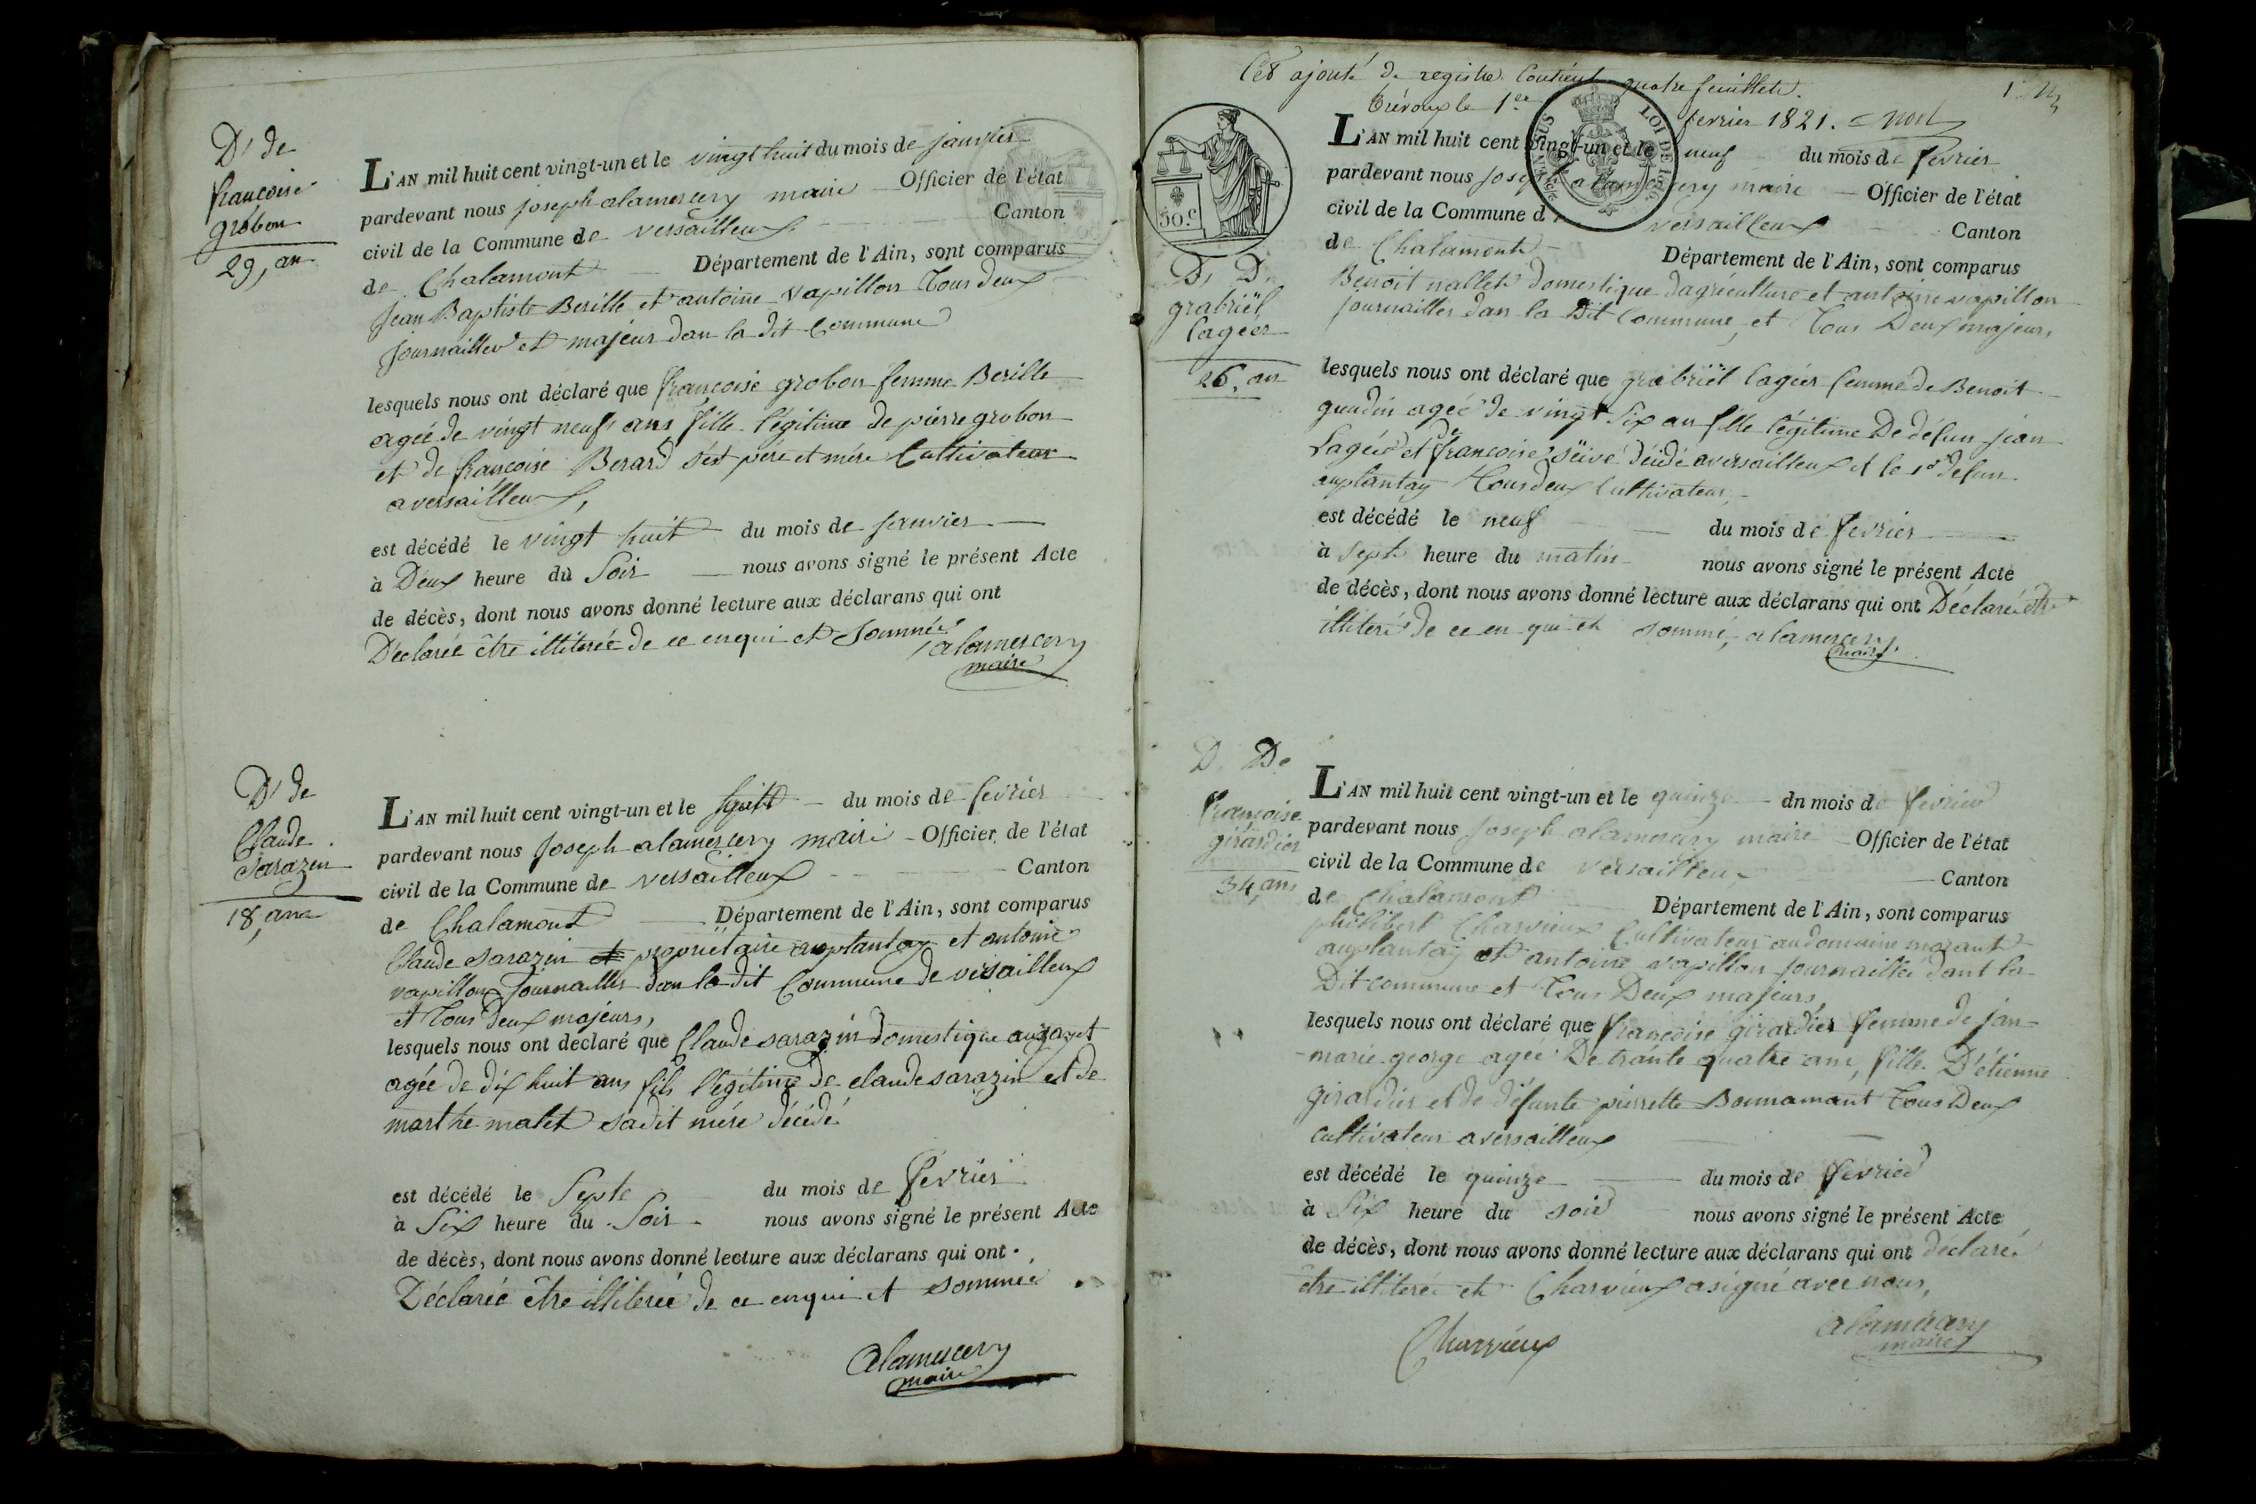 Ds de
francoise
grobon
29, an
L'AN mil huit cent vingt-un et le vingt huit du mois de janvier
pardevant nous joseph alamercery maire Officier de l'état
civil de la Commune de versailleux Canton
de Chalamont Département de l'Ain, sont comparus
Jean Baptiste Berille et antoine vapillon tous deux
journaillier et majeur dan la dit Commune
lesquels nous ont déclaré que françoise grobon femme Berille
agée de vingt neufs ans fille légitime de pierre grobon
et de françoise Berard s'est père et mére Cultivateur
a versailleux,
est décédé le vingt huit du mois de janvier
à Deux heure du Soir nous avons signé le présent Acte
de décès, dont nous avons donné lecture aux déclarans qui ont
Déclarée être illiterée de ce enqui et sommée
alamercery
maire
Ds de
Claude
Sarazin
18, ans
L'AN mil huit cent vingt-un et le du mois de fevrier
pardevant nous Joseph alamercery maire Officier de l'état
civil de la Commune de versailleux Canton
de Chalamont Département de l'Ain, sont comparus
Claude sarazin et propriétaire auplantay et antoine
vapillon Journaillier dan la dit Commune de versailleux
et tous deux majeurs,
lesquels nous ont declaré que Claude sarazin Domestique
agée de dix huit ans fils légitime de claude sarazin et de
marthe malet sadit mére décédé
est décédé le Septe du mois de fevrier
à Six heure du Soir nous avons signé le présent Acte
de décès, dont nous avons donné lecture aux déclarans qui ont
Déclarée être illiterée de ce enqui et sommée
alamercery
maire
Cet ajouté de registre Contient quatre feuillets.
trévoux le 1er fevrier 1821.
LOI DE 1816
30.c
D. D.
grabriël
lageer
26, an
L'AN mil huit cent vingt-un et le neuf du mois de fevrier
pardevant nous joseph alamercery maire Officier de l'état
civil de la Commune d versailleux Canton
de Chalamont Département de l'Ain, sont comparus
Benoit nallet domestique dagriculture et antoine vapillon
journaillier dan la Dit Commune, et tous Deux majeurs,
lesquels nous ont déclaré que grabriël lagéer femme de Benoit
agée de vingt Six an fille légitime De défun jean
Lagéer et de francoise a versailleux et le 1er defun
auplantay tous deux Cultivateur,
est décédé le neuf du mois de fevrier
à Septe heure du matin nous avons signé le présent Acte
de décès, dont nous avons donné lecture aux déclarans qui ont Déclarée être
illiteré de ce en qui et sommé, alamercery
maire
D. De
françoise
girardier
34, ans
L'AN mil huit cent vingt-un et le quinze dn mois de fevrier
pardevant nous Joseph alamercery maire Officier de l'état
civil de la Commune de versailleux Canton
de Chalamont Département de l'Ain, sont comparus
philibert Charvieux Cultivateur audomaine morant
auplantay et antoine vapillon Journaillier dant la
Dit commune et tous Deux majeurs,
lesquels nous ont déclaré que françoise girardier femme de jan
marie george agée De trante quatre ans, fille D'étienne
girardier et de défunte pierrette Bonnamant tous Deux
cultivateur a versailleux
est décédé le quinze du mois de fevrier
à Six heure du soir nous avons signé le présent Acte
de décès, dont nous avons donné lecture aux déclarans qui ont déclaré
être illiteré et Charvieux a signé avec nous,
Charvieux
alamercery
maire